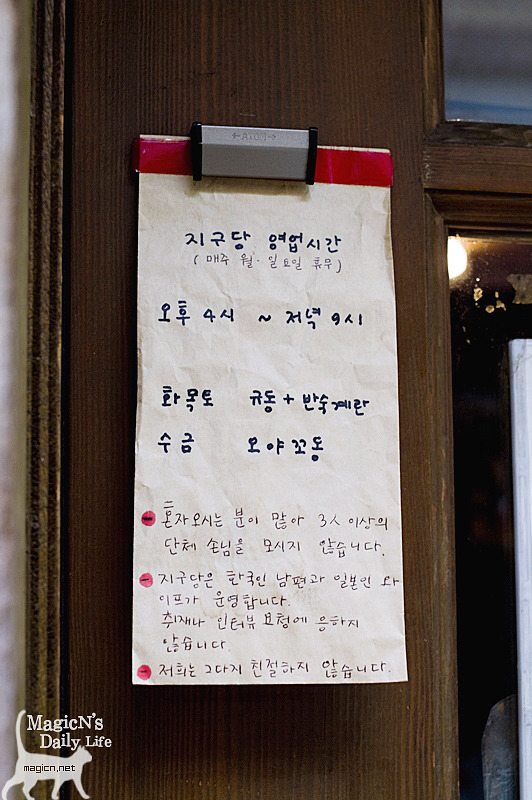 지구당 영업시간
( 매주 월·일요일 휴무 )
오후 4시 ~ 저녁 9시
화목토 규동 + 반숙계란
수금 오야꼬동
- 혼자오시는 분이 많아 3人 이상의
단체 손님을 모시지 않습니다.
- 지구당은 한국인 남편과 일본인 와
이프가 운영합니다.
취재나 인터뷰 요청에 응하지
않습니다.
- 저희는 그다지 친절하지 않습니다.
MagicN's
Daily Life
magicn.net